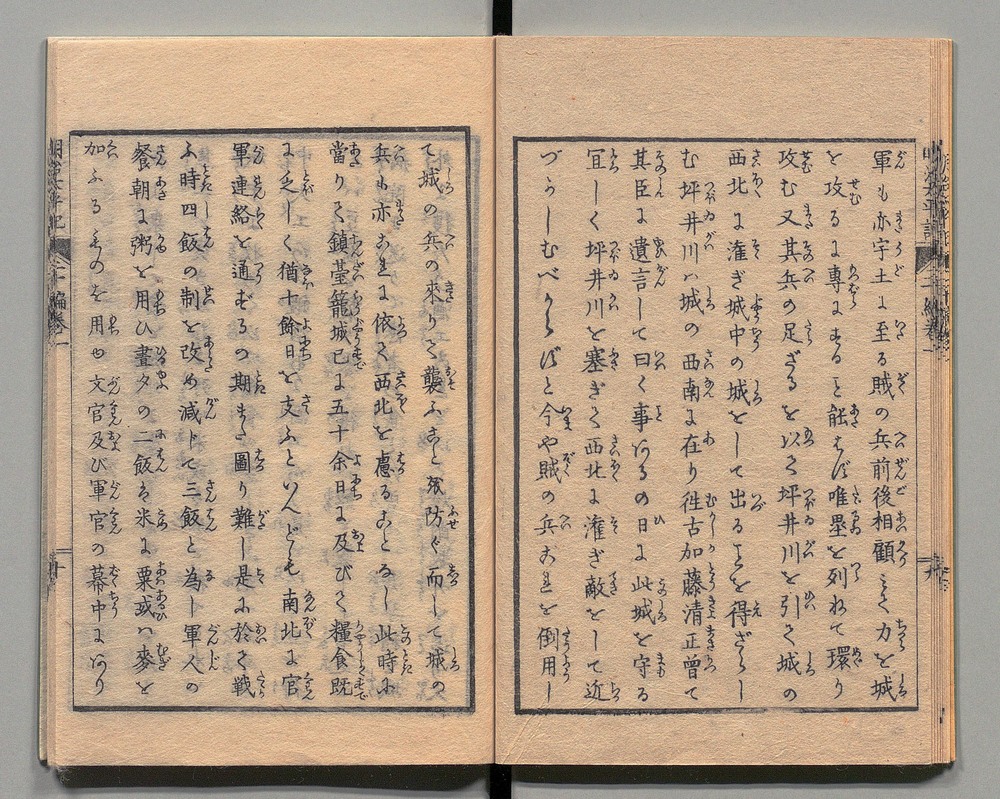 軍も亦宇土に至る賊の兵前後相顧みて力を城
を攻るに專にすること能はず唯壘を列ねて環り
攻む又其兵の足ざるを以て坪井川を引て城の
西北に潅ぎ城中の城をして出ることを得ざらし
む坪井川ハ城の西南に在り徃古加藤清正曽て
其臣に遺言して曰く事あるの日に此城を守る
宜しく坪井川を塞ぎて西北に潅ぎ敵をして近
づからしむべからずと今や賊の兵これを倒用し
て城の兵の來りて襲ふことを防ぐ而して城の
兵も亦これに依て西北を慮ることなし此時に
當りて鎮臺籠城已に五十余日に及びて糧食既
に乏しく猶十餘日を支ふといへども南北に官
軍連絡を通ずるの期また圖り難し是に於て戦
ふ時四飯の制を改め減じて三飯と為し軍人の
餐朝に粥を用ひ晝夕の二飯ハ米に粟或ハ麥を
加ふるものを用ゆ文官及び軍官の幕中にあり